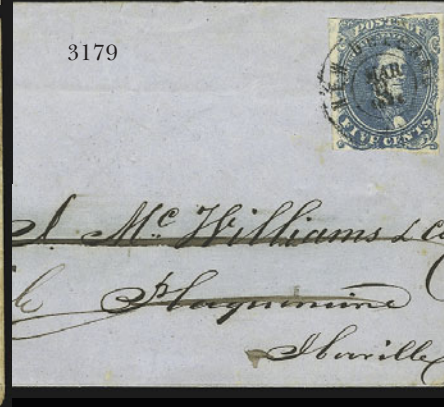 3179
POSTAGE
NEW
MAR
FIVE CENTS
J. Mc Williams & Co
Plaquemine
Iberville